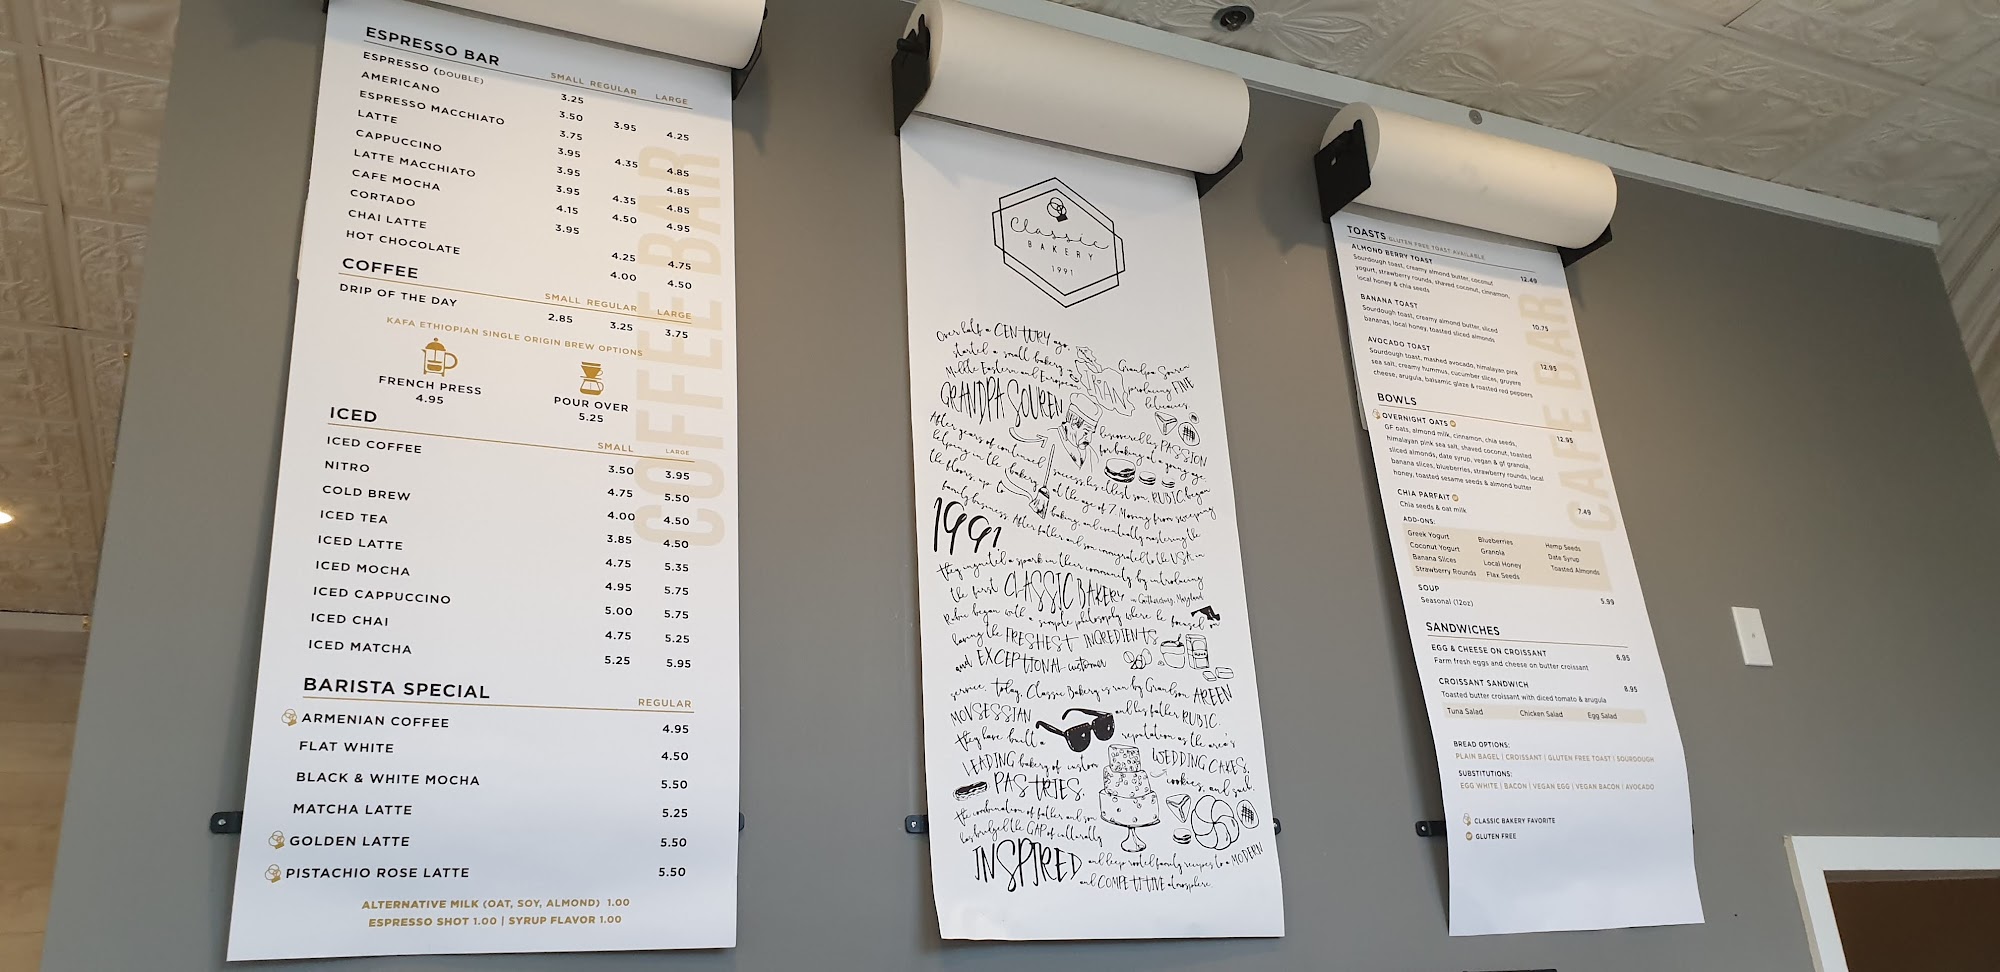 ESPRESSO BAR
SMALL REGULAR LARGE
ESPRESSO (DOUBLE) 3.25
AMERICANO 3.50 3.95 4.25
ESPRESSO MACCHIATO 3.75
LATTE 3.95 4.35 4.85
CAPPUCCINO 3.95 4.85
LATTE MACCHIATO 3.95 4.35 4.85
CAFE MOCHA 4.15 4.50 4.95
CORTADO 3.95
CHAI LATTE 4.25 4.75
HOT CHOCOLATE 4.00 4.50
COFFEE
SMALL REGULAR LARGE
DRIP OF THE DAY 2.85 3.25 3.75
KAFA ETHIOPIAN SINGLE ORIGIN BREW OPTIONS
FRENCH PRESS POUR OVER
4.95 5.25
ICED
SMALL LARGE
ICED COFFEE 3.50 3.95
NITRO 4.75 5.50
COLD BREW 4.00 4.50
ICED TEA 3.85 4.50
ICED LATTE 4.75 5.35
ICED MOCHA 4.95 5.75
ICED CAPPUCCINO 5.00 5.75
ICED CHAI 4.75 5.25
ICED MATCHA 5.25 5.95
BARISTA SPECIAL
REGULAR
ARMENIAN COFFEE 4.95
FLAT WHITE 4.50
BLACK & WHITE MOCHA 5.50
MATCHA LATTE 5.25
GOLDEN LATTE 5.50
PISTACHIO ROSE LATTE 5.50
ALTERNATIVE MILK (OAT, SOY, ALMOND) 1.00
ESPRESSO SHOT 1.00 | SYRUP FLAVOR 1.00
COFFEE BAR
Classic
BAKERY
1991
Over half a CENTURY ago,
started a small bakery
Middle Eastern and European
Grandpa Souren
producing FINE
delicacies
GRANDPA SOUREN
discovered his PASSION
for baking at a young age.
After years of continued success, his eldest son, RUBIC began
helping in the bakery at the age of 7. Moving from sweeping
the floors, up to baking, and eventually mastering the
family business. After father and son immigrated to the USA in
1991
they ignited a spark in their community by introducing
the first CLASSIC BAKERY in Gaithersburg, Maryland
Rubic began with a simple philosophy where he focused on
having the FRESHEST INGREDIENTS
and EXCEPTIONAL customer
service. Today, Classic Bakery is run by Grandson AREEN
MOVSESSIAN and his father RUBIC.
They have built a reputation as the area's
LEADING bakery of custom WEDDING CAKES,
PASTRIES, cookies, and
the combination of father and son
has bridged the GAP of culturally
INSPIRED and deep rooted family recipes to a MODERN
and COMPETITIVE atmosphere.
TOASTS GLUTEN FREE TOAST AVAILABLE
ALMOND BERRY TOAST 12.49
Sourdough toast, creamy almond butter, coconut
yogurt, strawberry rounds, shaved coconut, cinnamon,
local honey & chia seeds
BANANA TOAST 10.75
Sourdough toast, creamy almond butter, sliced
bananas, local honey, toasted sliced almonds
AVOCADO TOAST 12.95
Sourdough toast, mashed avocado, himalayan pink
sea salt, creamy hummus, cucumber slices, gruyere
cheese, arugula, balsamic glaze & roasted red peppers
BOWLS
OVERNIGHT OATS 12.95
GF oats, almond milk, cinnamon, chia seeds,
himalayan pink sea salt, shaved coconut, toasted
sliced almonds, date syrup, vegan & gf granola,
banana slices, blueberries, strawberry rounds, local
honey, toasted sesame seeds & almond butter
CHIA PARFAIT 7.49
Chia seeds & oat milk
ADD-ONS:
Greek Yogurt Blueberries Hemp Seeds
Coconut Yogurt Granola Date Syrup
Banana Slices Local Honey Toasted Almonds
Strawberry Rounds Flax Seeds
SOUP 5.99
Seasonal (12oz)
SANDWICHES
EGG & CHEESE ON CROISSANT 6.95
Farm fresh eggs and cheese on butter croissant
CROISSANT SANDWICH 8.95
Toasted butter croissant with diced tomato & arugula
Tuna Salad Chicken Salad Egg Salad
BREAD OPTIONS:
PLAIN BAGEL | CROISSANT | GLUTEN FREE TOAST | SOURDOUGH
SUBSTITUTIONS:
EGG WHITE | BACON | VEGAN EGG | VEGAN BACON | AVOCADO
CLASSIC BAKERY FAVORITE
GLUTEN FREE
CAFE BAR